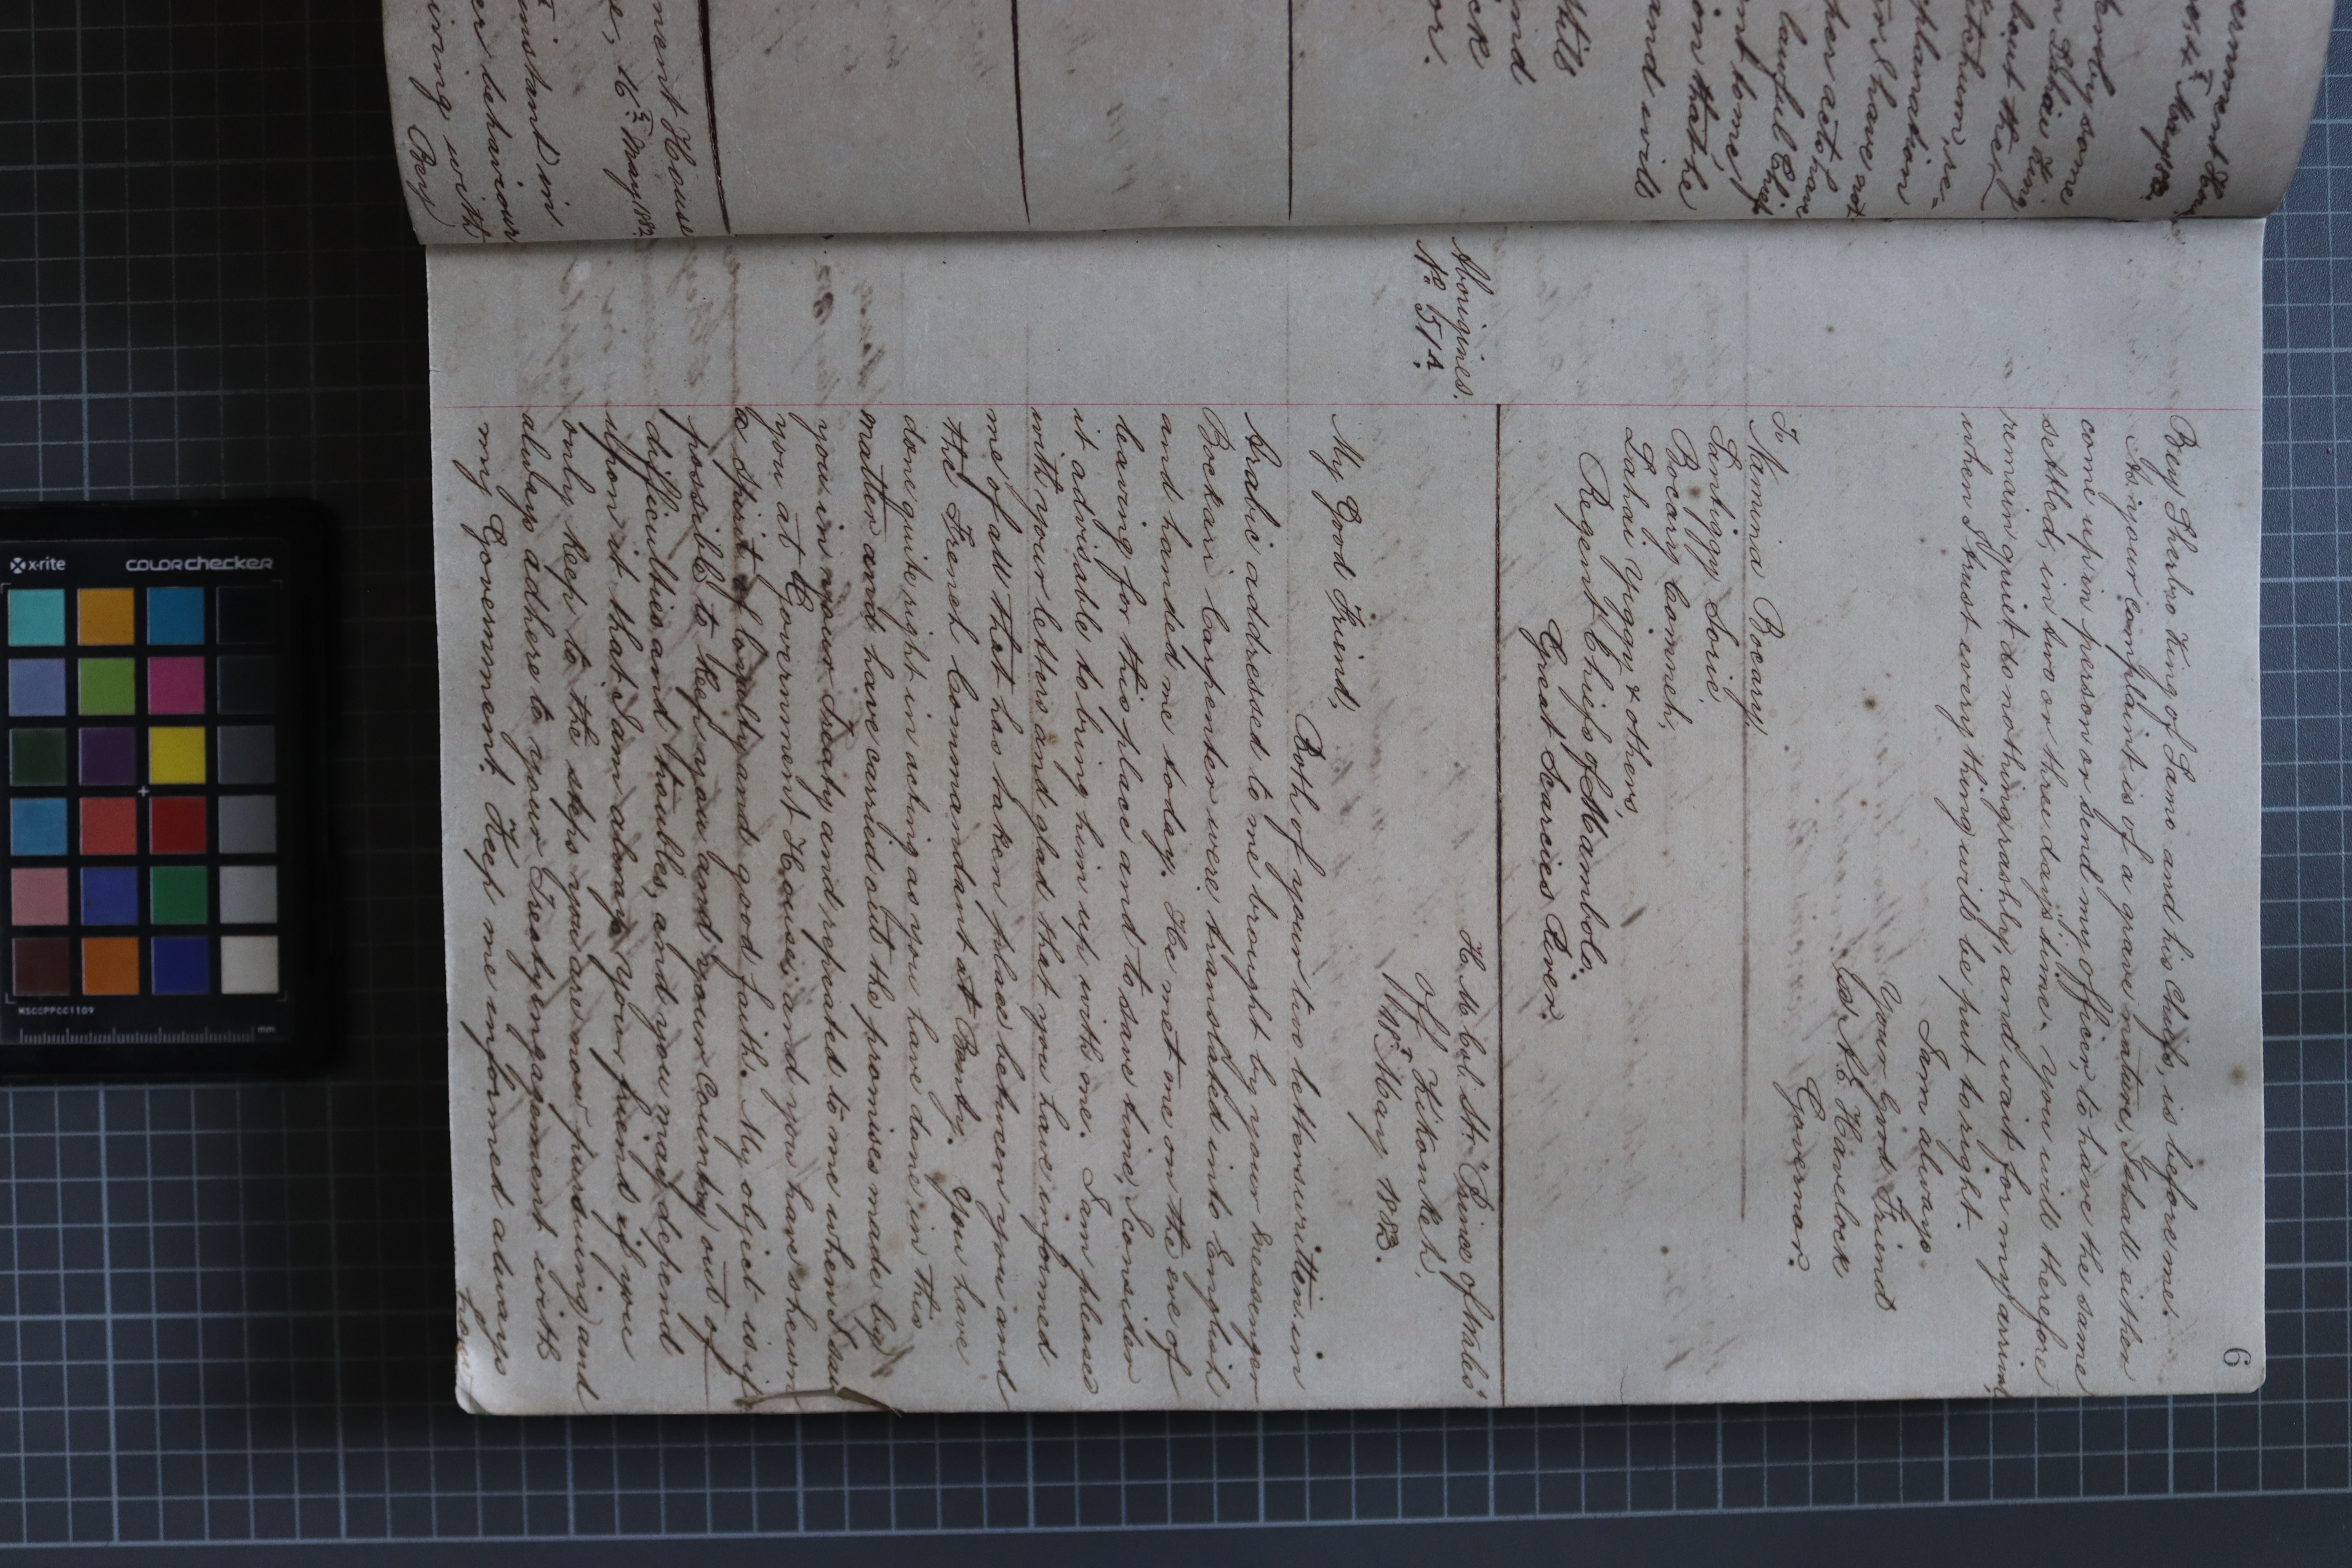 6
Bey Sherbro King of Samo and his Chiefs, is before me.
As your complaint is of a grave nature, I shall either
come up in person or send my officer, to have the same
settled, in two or three days time. You will therefore
remain quiet do nothing rashly, and wait for my arrival,
when I trust everything will be put to right.
I am always
Your Good Friend
A. E. Havelock
Governor.
To
Namina Bocary
Santiggy Sorie,
Bocary Commeh,
Lahai Yiggy & others,
Regent Chiefs of Mambolo.
Great Scarcies River.
Aborigines.
No. 514.
H. M. Col. Str. "Prince of Wales"
Off Kikonkeh,
18th May 1883.
My Good Friend,
Both of your two letters written in
Arabic addressed to me brought by your messenger
Bockari Carpenter were translated into English
and handed me today. He met me on the eve of
leaving for this place and to save time, I consider
it advisable to bring him up with me. I am pleased
with your letters and glad that you have informed
me of all that has taken place between you and
the French Commandant at Benty. You have
done quite right in acting as you have done in this
matter and have carried out the promises made by
you in your Treaty and repeated to me when I saw
you at Government House; and you have shewn
a spirit of loyalty and good faith. My object is if
possible to keep you and your Country out of
difficulties and troubles, and you may depend
upon it that I am always your friend if you
only keep to the steps you are now pursuing and
always adhere to your Treaty engagement with
my Government. Keep me informed always
how
ernment House
some
Lahai King
about the
Ketchum, re-
planation
I have not
her acts have
lawful Chief
ent to me,
ion that he
and will
still
and
or.
ment House
16th May, 1883.
instant in
er behaviour
iving with
Bey
x-rite
colorchecker
MSCCPPCC1109
mm